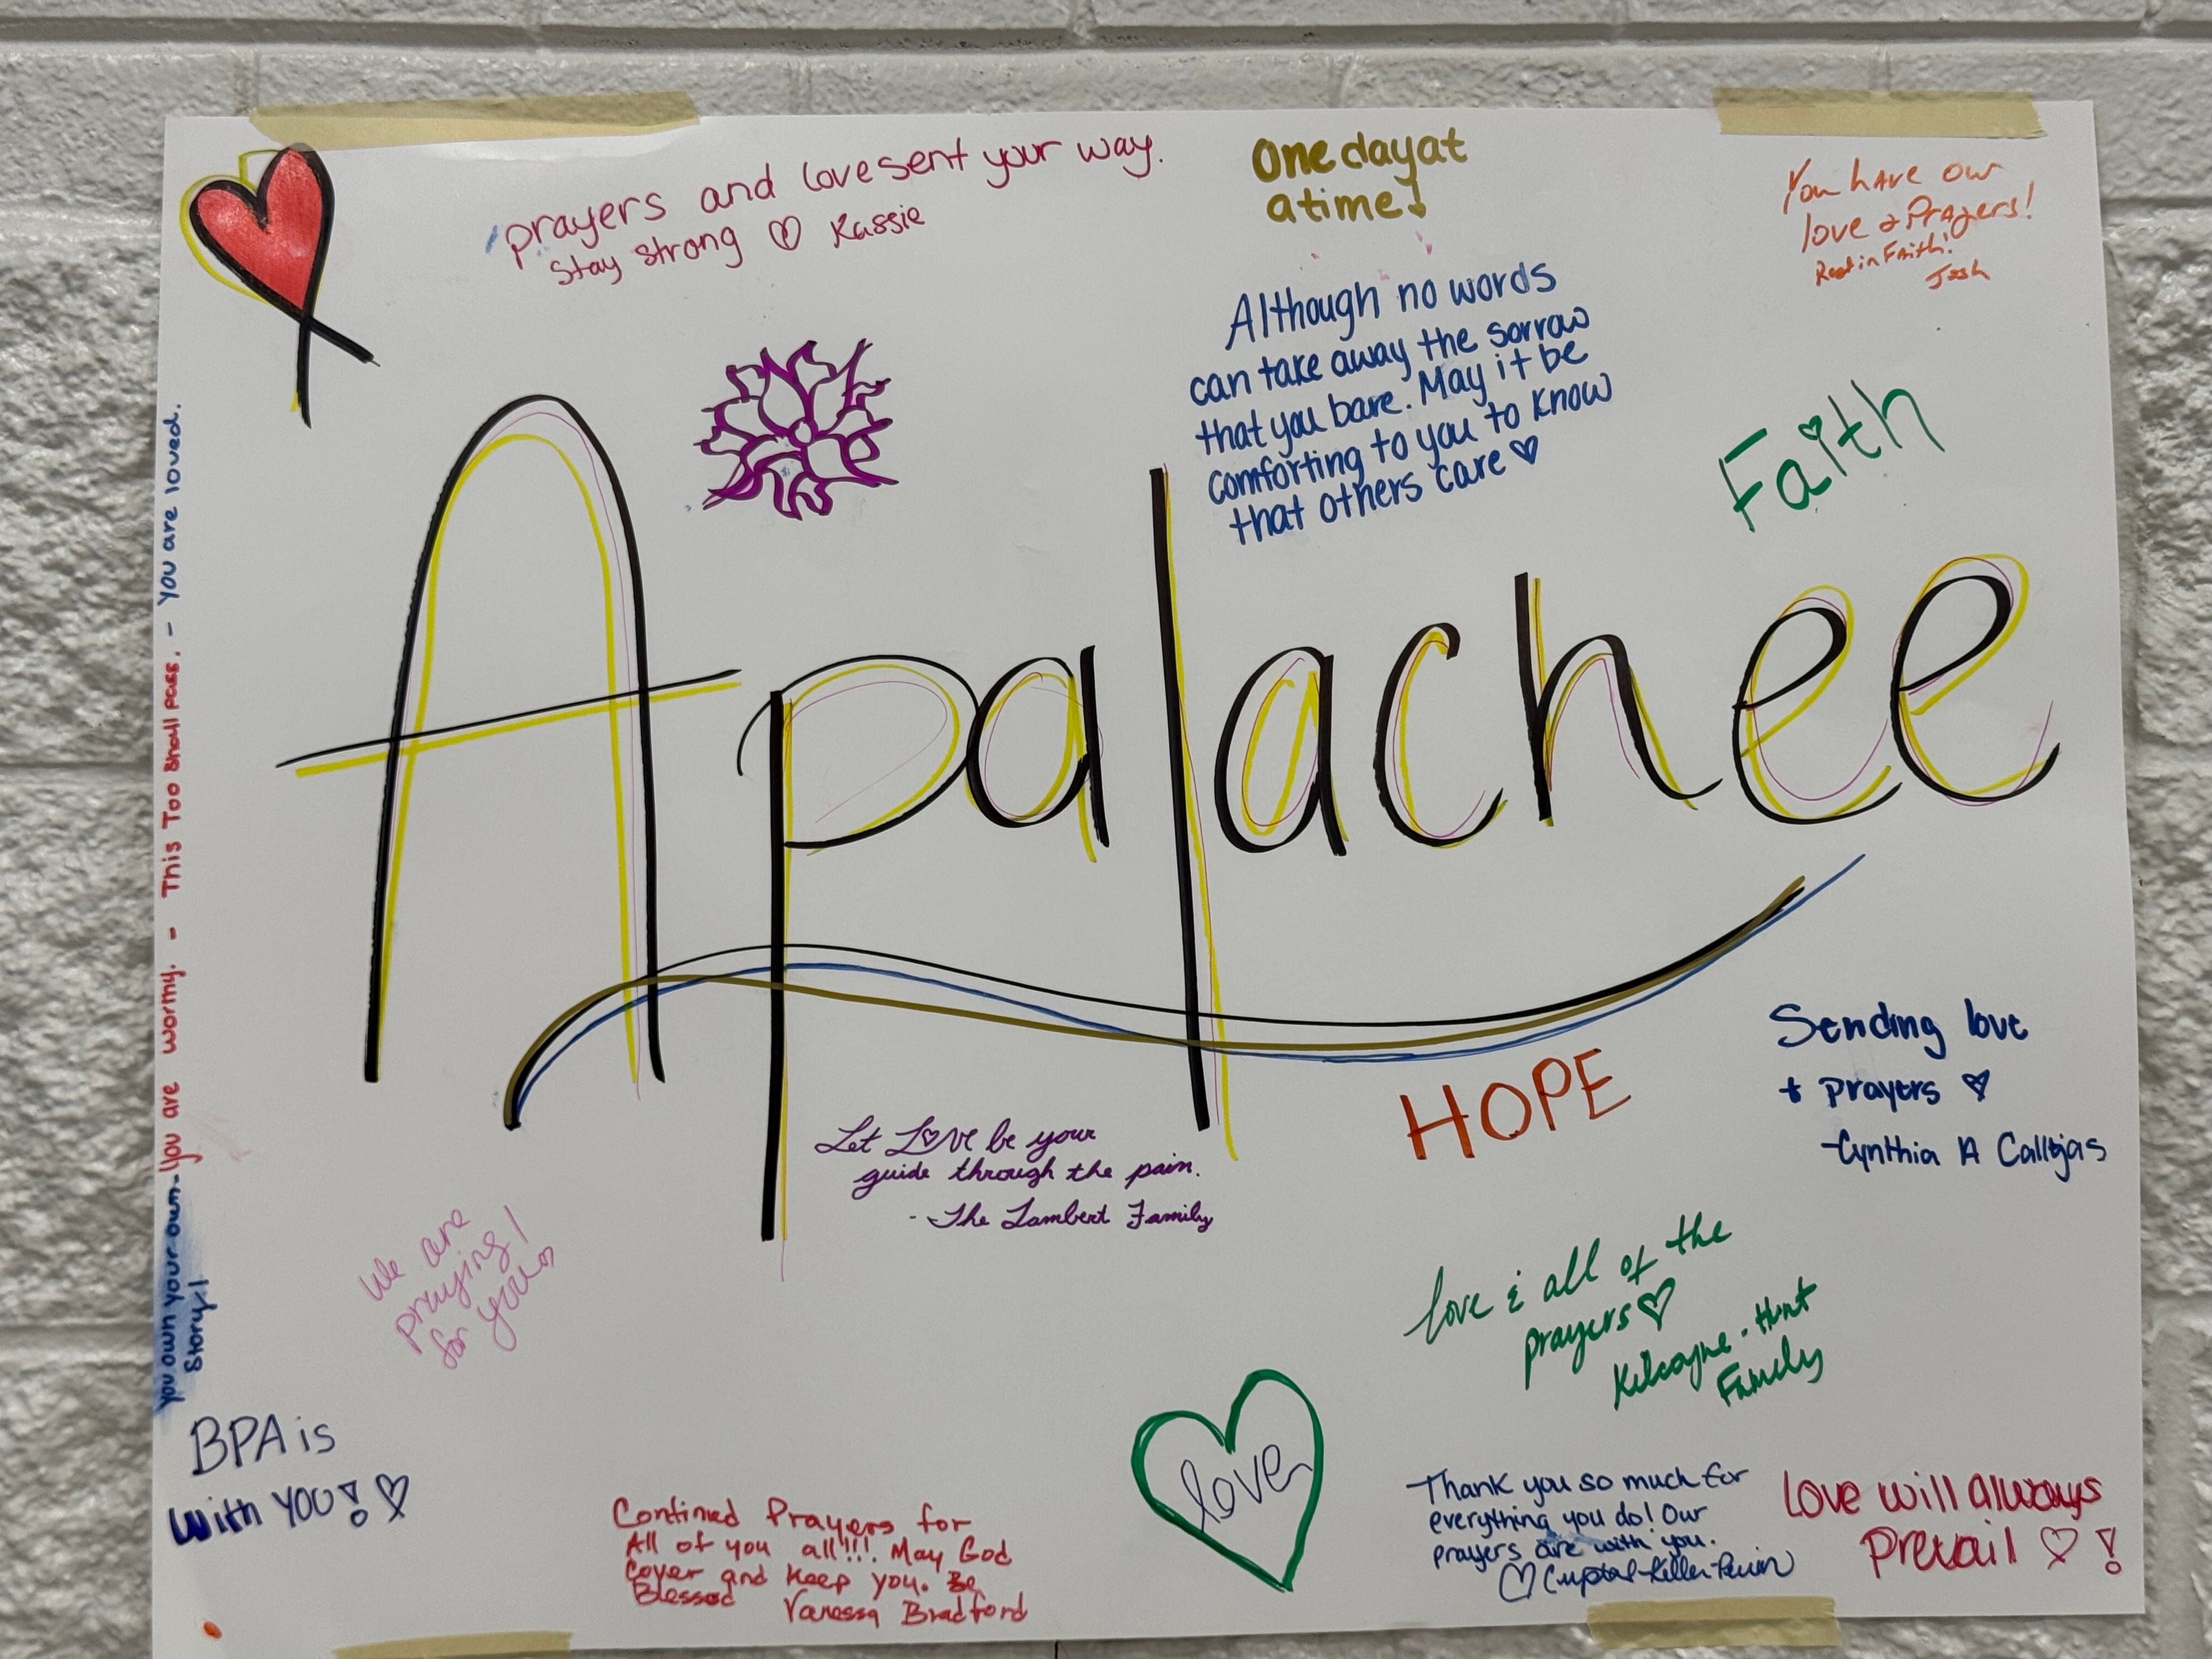 prayers and love sent your way.
stay strong ♡ Kassie
One day at
a time!
You have our
love & Prayers!
Rest in Faith!
Josh
Although no words
can take away the sorrow
that you bare. May it be
comforting to you to know
that others care ♡
Faith
Apalachee
You own your own story! - You are worthy. - This Too Shall pass. - You are loved.
HOPE
Sending love
+ prayers ♡
-Cynthia A
Let Love be your
guide through the pain.
- The Lambert Family
We are
praying
for you
love & all of the
prayers ♡
Kilcoyne-Hunt
Family
BPA is
with YOU! ♡
love
Continued Prayers for
All of you all!!! May God
Cover and Keep you. Be
Blessed Vanessa Bradford
Thank you so much for
everything you do! Our
prayers are with you.
♡
Love will always
Prevail ♡!